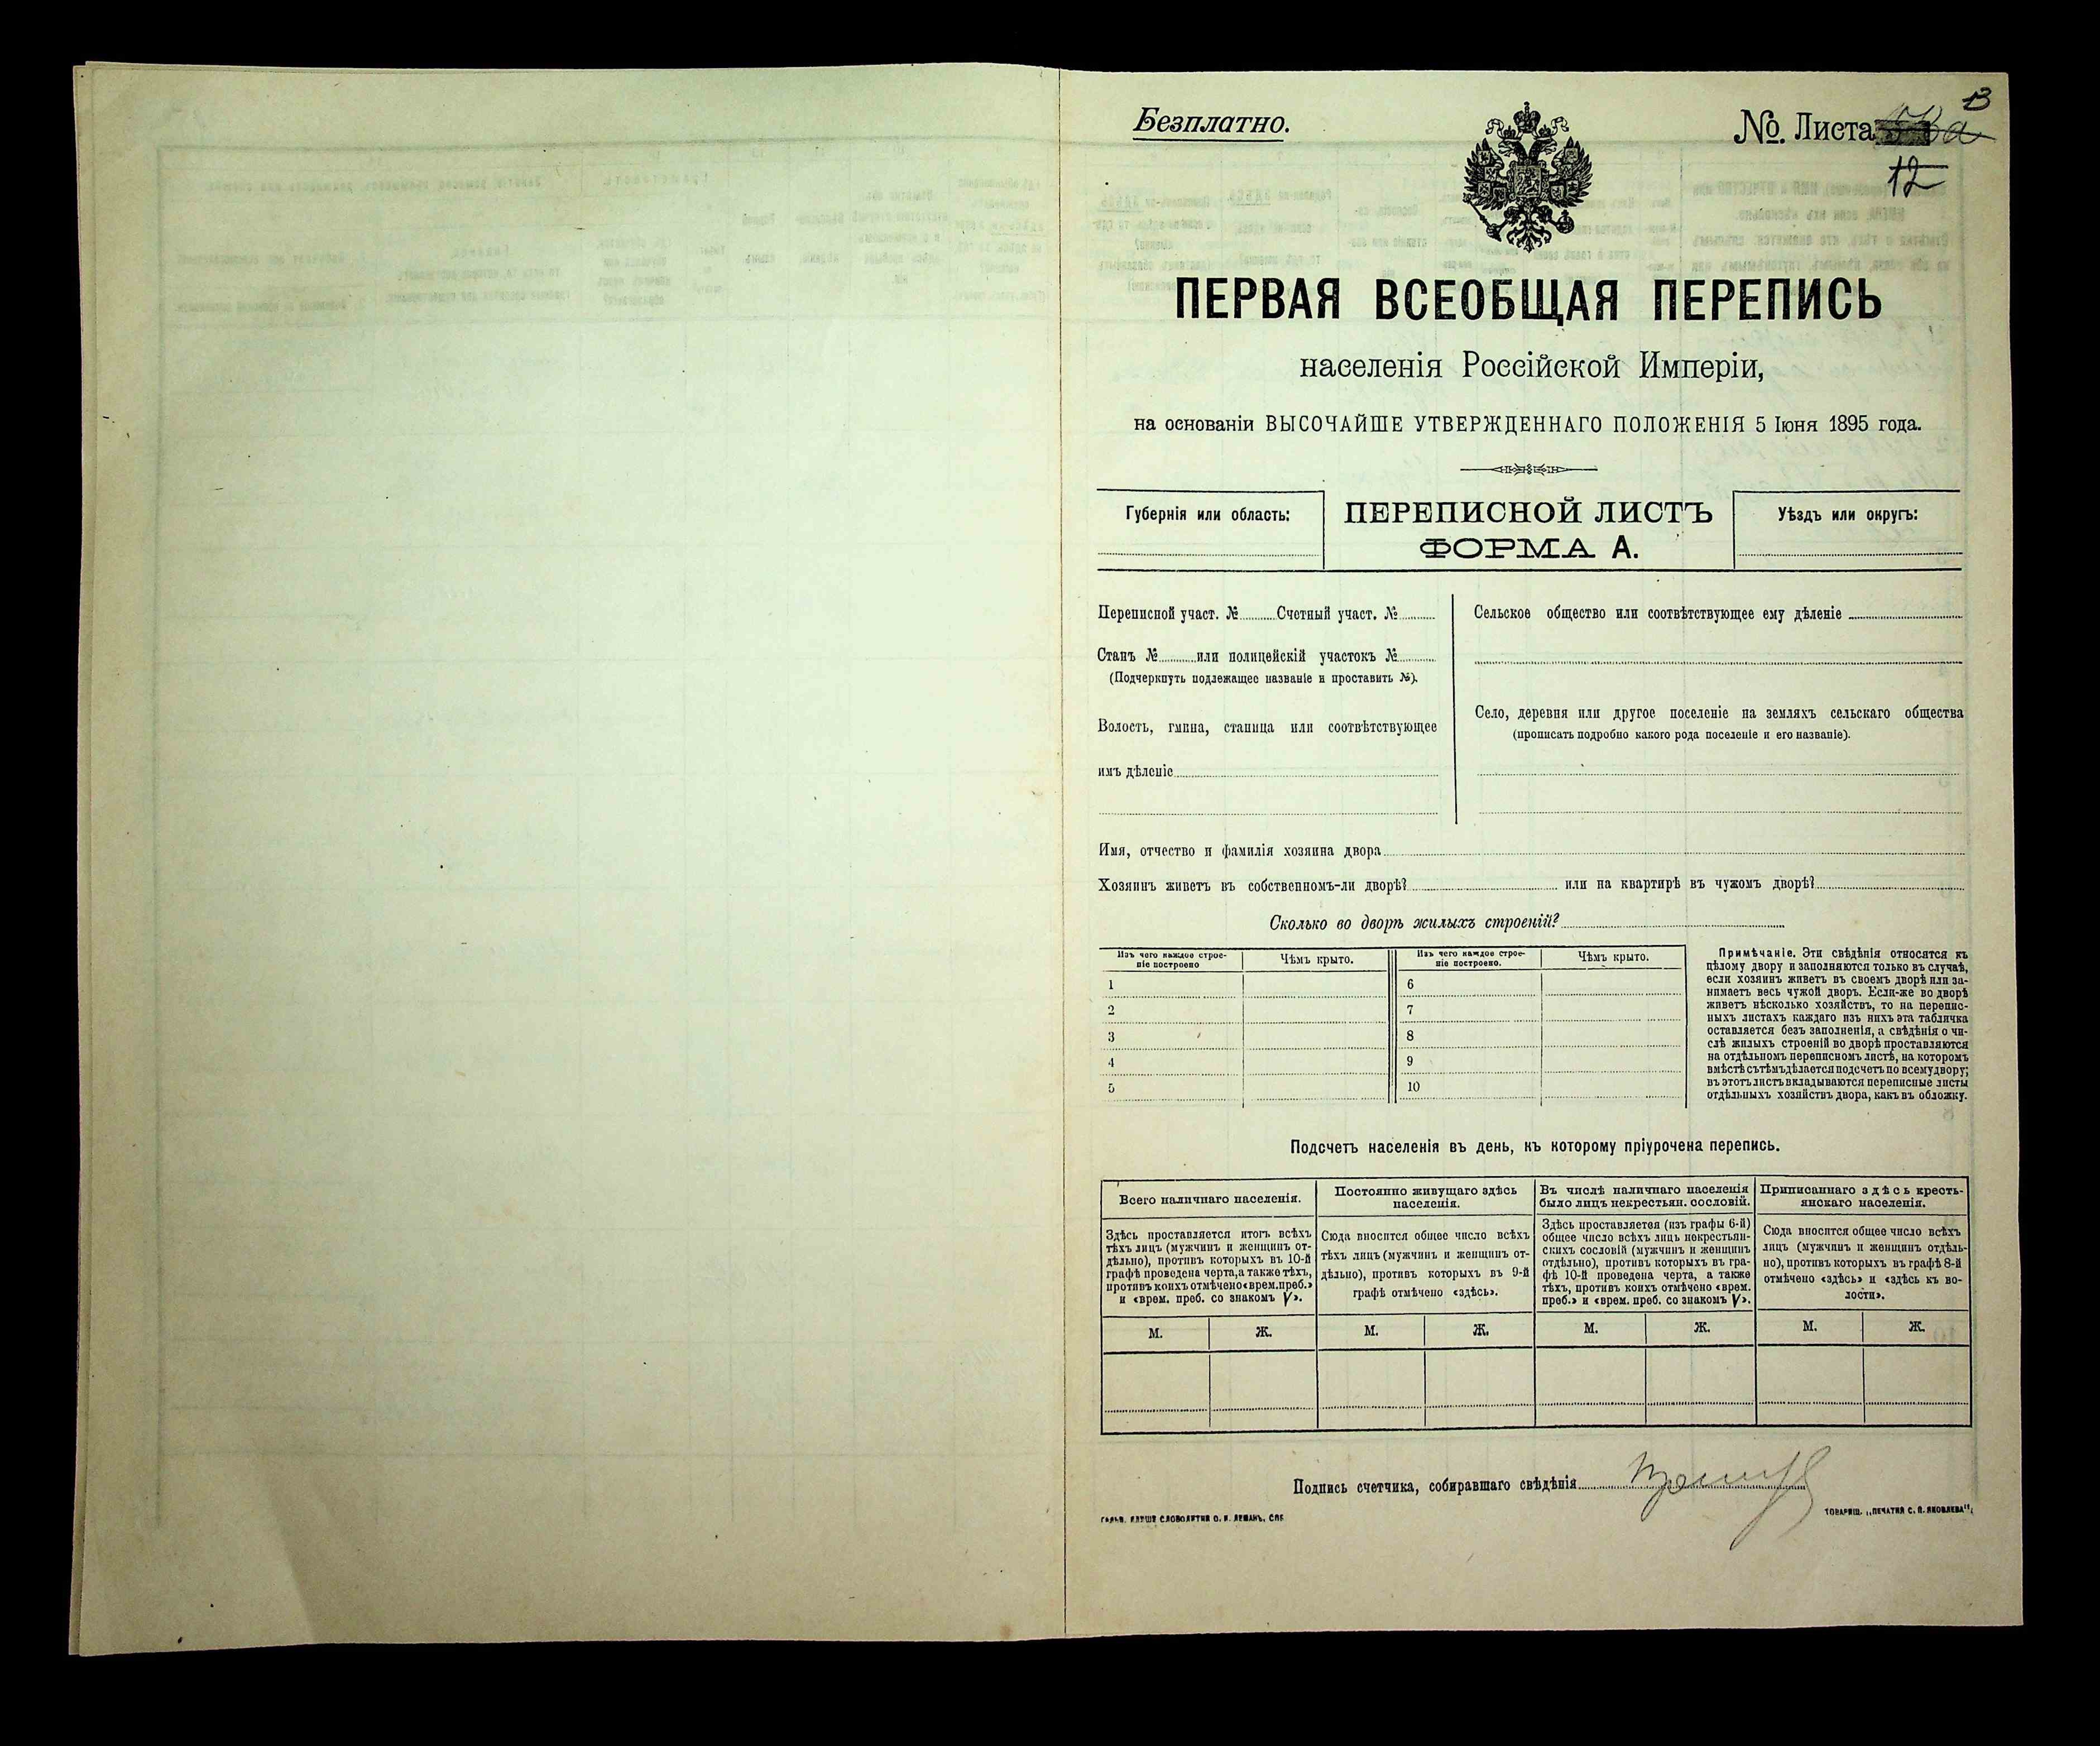 13
Безплатно.
№ Листа
12
ПЕРВАЯ ВСЕОБЩАЯ ПЕРЕПИСЬ
населенія Россійской Имперіи,
на основаніи ВЫСОЧАЙШЕ УТВЕРЖДЕННАГО ПОЛОЖЕНІЯ 5 Іюня 1895 года.
Губернія или область:
ПЕРЕПИСНОЙ ЛИСТЪ
ФОРМА А.
Уѣздъ или округъ:
Переписной участ. № Счетный участ. №
Станъ № или полицейскій участокъ №
(Подчеркнуть подлежащее названіе и проставить №).
Волость, гмина, станица или соотвѣтствующее
имъ дѣленіе
Сельское общество или соотвѣтствующее ему дѣленіе
Село, деревня или другое поселеніе на земляхъ сельскаго общества
(прописать подробно какого рода поселеніе и его названіе).
Имя, отчество и фамилія хозяина двора
Хозяинъ живетъ въ собственномъ-ли дворѣ? или на квартирѣ въ чужомъ дворѣ?
Сколько во дворѣ жилыхъ строеній?
Изъ чего каждое строе-
ніе построено
Чѣмъ крыто.
Изъ чего каждое строе-
ніе построено.
Чѣмъ крыто.
1
2
3
4
5
6
7
8
9
10
Примѣчаніе. Эти свѣдѣнія относятся къ
цѣлому двору и заполняются только въ случаѣ,
если хозяинъ живетъ въ своемъ дворѣ или за-
нимаетъ весь чужой дворъ. Если-же во дворѣ
живетъ нѣсколько хозяйствъ, то на перепис-
ныхъ листахъ каждаго изъ нихъ эта табличка
оставляется безъ заполненія, а свѣдѣнія о чи-
слѣ жилыхъ строеній во дворѣ проставляются
на отдѣльномъ переписномъ листѣ, на которомъ
вмѣстѣ съ тѣмъ дѣлается подсчетъ по всему двору;
въ этотъ листъ вкладываются переписные листы
отдѣльныхъ хозяйствъ двора, какъ въ обложку.
Подсчетъ населенія въ день, къ которому пріурочена перепись.
Всего наличнаго населенія.
Здѣсь проставляется итогъ всѣхъ
тѣхъ лицъ (мужчинъ и женщинъ от-
дѣльно), противъ которыхъ въ 10-й
графѣ проведена черта, а также тѣхъ,
противъ коихъ отмѣчено «врем. преб.»
и «врем. преб. со знакомъ V».
Постоянно живущаго здѣсь
населенія.
Сюда вносится общее число всѣхъ
тѣхъ лицъ (мужчинъ и женщинъ от-
дѣльно), противъ которыхъ въ 9-й
графѣ отмѣчено «здѣсь».
Въ числѣ наличнаго населенія
было лицъ некрестьян. сословій.
Здѣсь проставляется (изъ графы 6-й)
общее число всѣхъ лицъ некрестьян-
скихъ сословій (мужчинъ и женщинъ
отдѣльно), противъ которыхъ въ гра-
фѣ 10-й проведена черта, а также
тѣхъ, противъ коихъ отмѣчено «врем.
преб.» и «врем. преб. со знакомъ V».
Приписаннаго здѣсь кресть-
янскаго населенія.
Сюда вносится общее число всѣхъ
лицъ (мужчинъ и женщинъ отдѣль-
но), противъ которыхъ въ графѣ 8-й
отмѣчено «здѣсь» и «здѣсь къ во-
лости».
М. Ж. М. Ж. М. Ж. М. Ж.
Подпись счетчика, собиравшаго свѣдѣнія
СЛОВОЛИТНИ О. И. ЛЕМАНЪ, СПБ
ТОВАРИЩ. „ПЕЧАТНЯ С. П. ЯКОВЛЕВА“